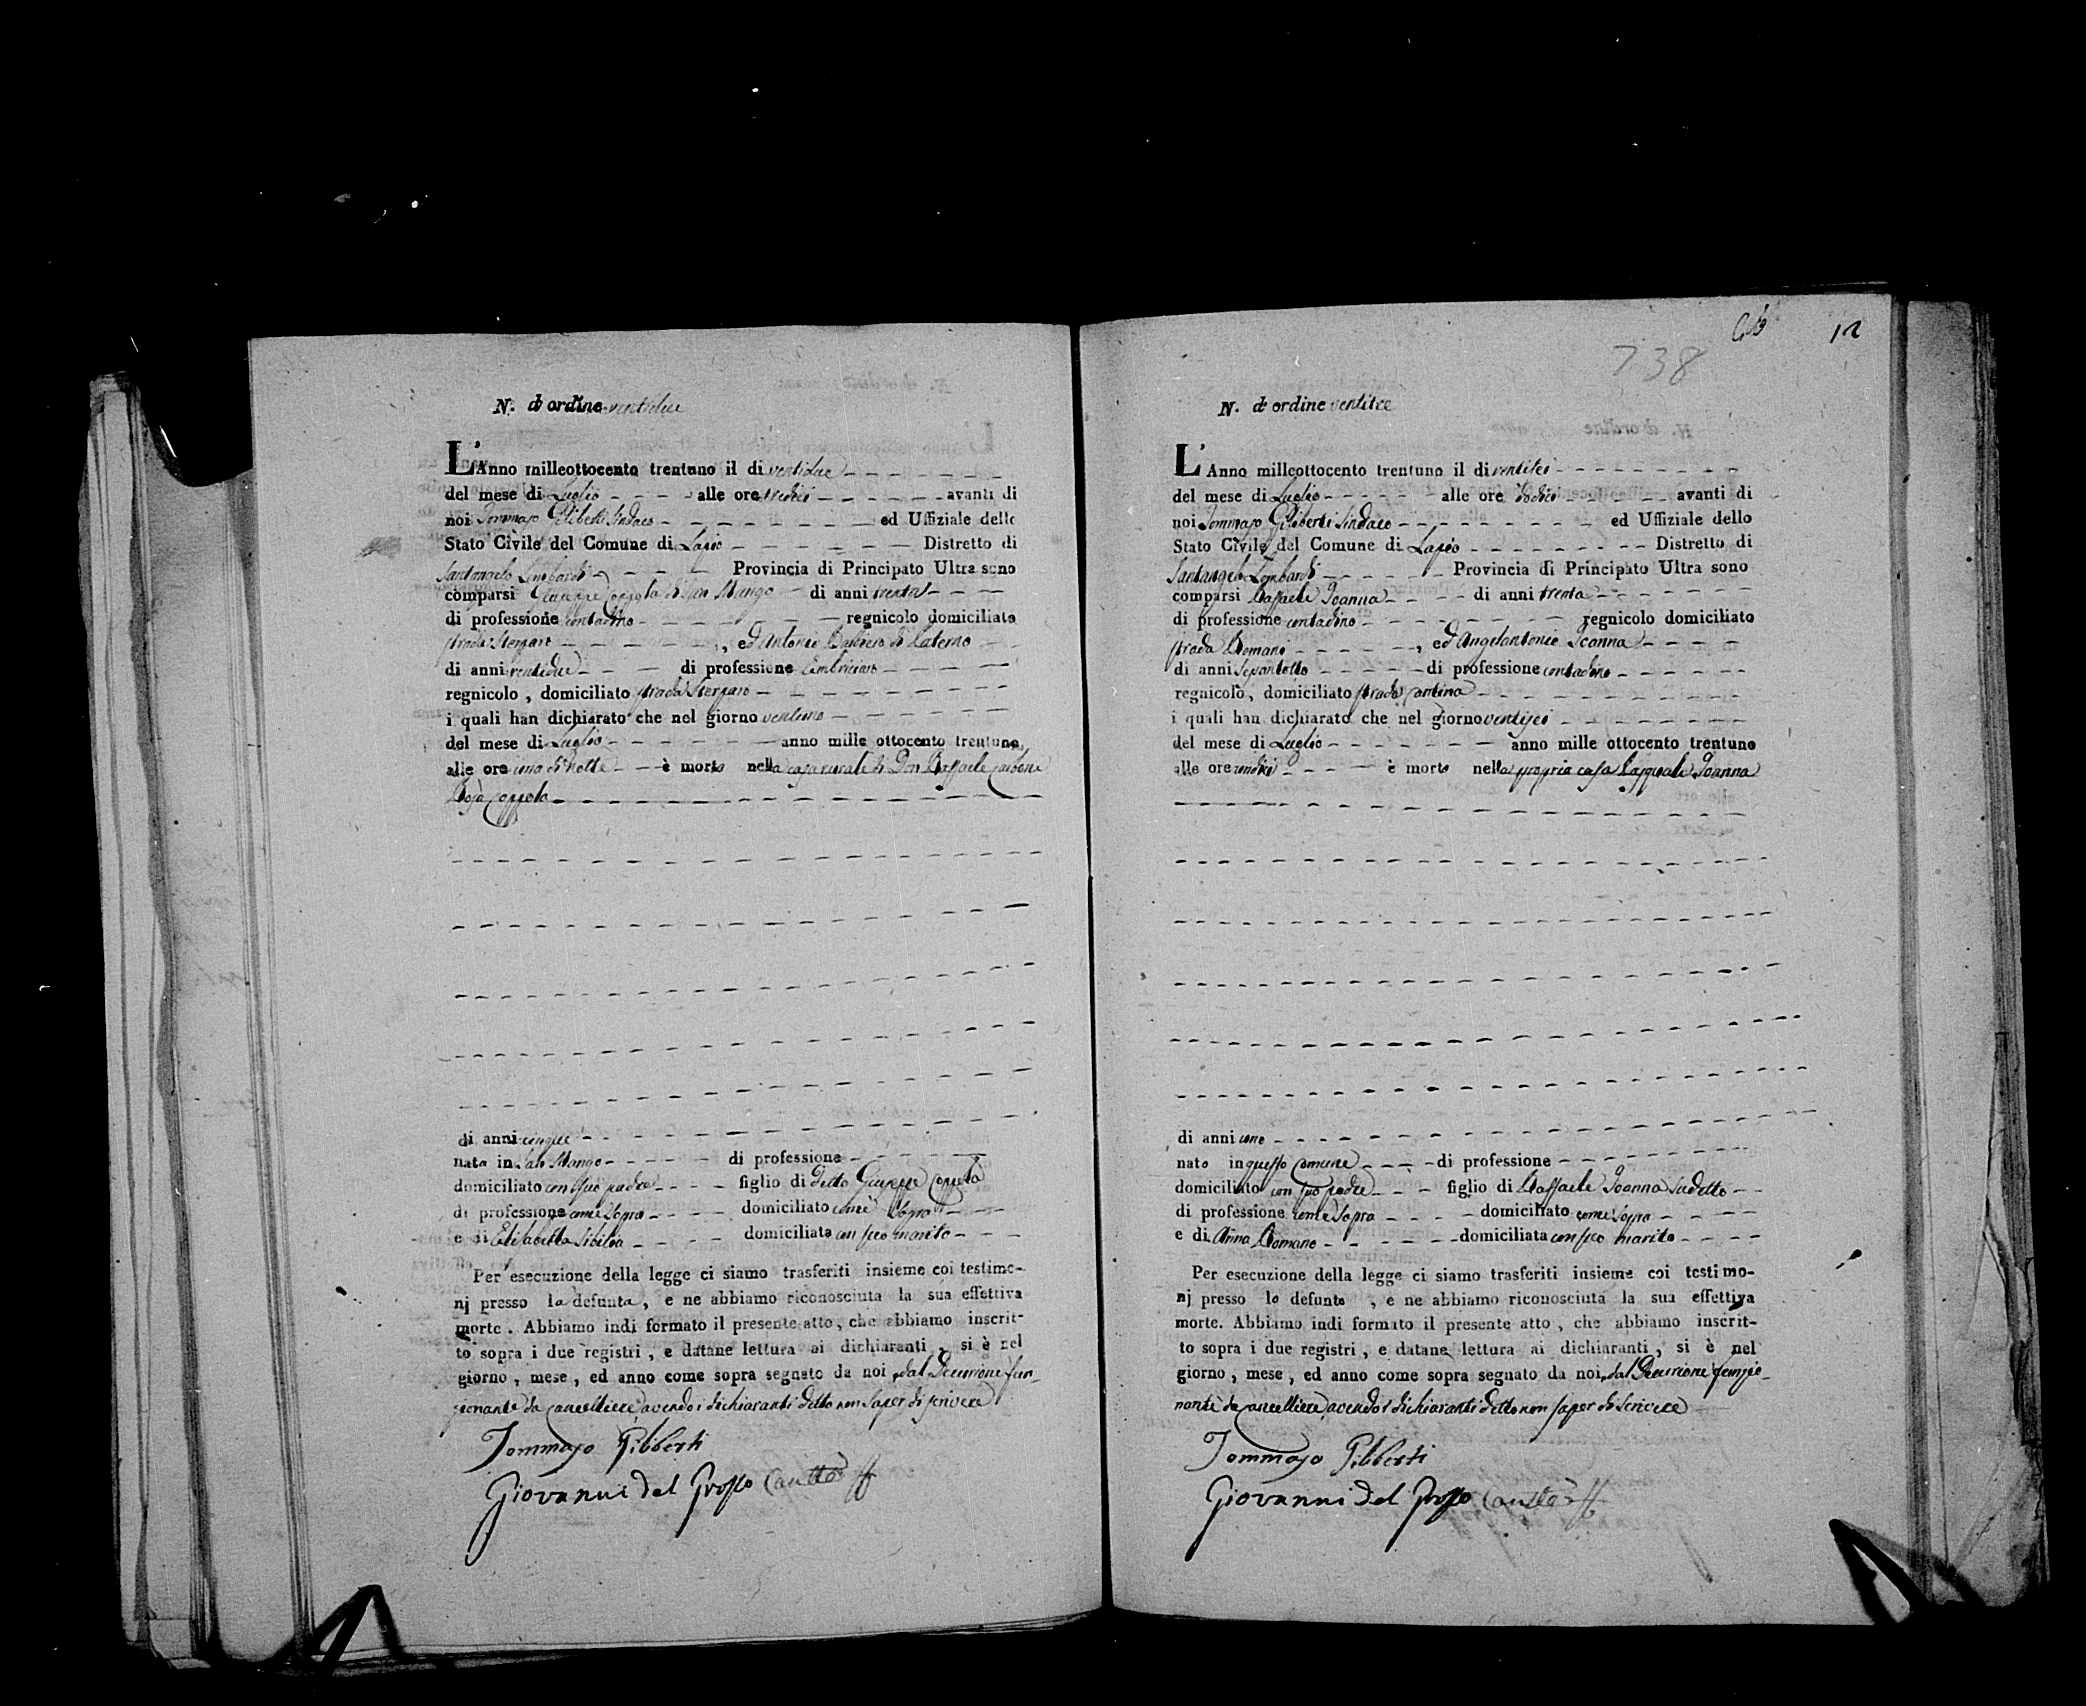 N.° d'ordine ventidue
L'Anno milleottocento trentuno il di ventidue
del mese di Luglio alle ore tredici avanti di
noi Tommaso Giliberti Sindaco ed Uffiziale dello
Stato Civile del Comune di Lapio Distretto di
Santangelo Lombardi Provincia di Principato Ultra sono
comparsi Giuseppe Coppola di San Mango di anni trenta
di professione contadino regnicolo domiciliato
strada , ed Antonio di Paterno
di anni ventidue di professione Embriciaro
regnicolo, domiciliato strada
i quali han dichiarato che nel giorno ventuno
del mese di Luglio anno mille ottocento trentuno
alle ore una di notte è morta nella casa rurale di Don Raffaele Carbone
Rosa Coppola
di anni cinque
nata in San Mango di professione
domiciliato con suo padre figlio di detto Giuseppe Coppola
di professione come sopra domiciliato come sopra
e di Elisabetta Sibilia domiciliata con suo marito
Per esecuzione della legge ci siamo trasferiti insieme coi testimo-
nj presso la defunta, e ne abbiamo riconosciuta la sua effettiva
morte. Abbiamo indi formato il presente atto, che abbiamo inscrit-
to sopra i due registri, e datane lettura ai dichiaranti, si è nel
giorno, mese, ed anno come sopra segnato da noi, dal Decurione fun-
zionante da Cancelliere avendo i dichiaranti detto non saper di scrivere
Tommaso Giliberti
Giovanni del Grosso
738
12
N.° d'ordine ventitre
L'Anno milleottocento trentuno il di ventisei
del mese di Luglio alle ore dodici avanti di
noi Tommaso Giliberti Sindaco ed Uffiziale dello
Stato Civile del Comune di Lapio Distretto di
Santangelo Lombardi Provincia di Principato Ultra sono
comparsi Raffaele Ioanna di anni trenta
di professione contadino regnicolo domiciliato
strada Romano , ed Angelantonio Ioanna
di anni Sessantotto di professione contadino
regnicolo, domiciliato strada Cantina
i quali han dichiarato che nel giorno ventisei
del mese di Luglio anno mille ottocento trentuno
alle ore undici è morto nella propria casa Pasquale Ioanna
di anni uno
nato in questo Comune di professione
domiciliato con suo padre figlio di Raffaele Ioanna sudetto
di professione come sopra domiciliato come sopra
e di Anna Romano domiciliata con suo marito
Per esecuzione della legge ci siamo trasferiti insieme coi testimo-
nj presso lo defunto , e ne abbiamo riconosciuta la sua effettiva
morte. Abbiamo indi formato il presente atto, che abbiamo inscrit-
to sopra i due registri, e datane lettura ai dichiaranti, si è nel
giorno, mese, ed anno come sopra segnato da noi, dal Decurione funzio-
nante da Cancelliere avendo i dichiaranti detto non saper di scrivere
Tommaso Giliberti
Giovanni del Grosso